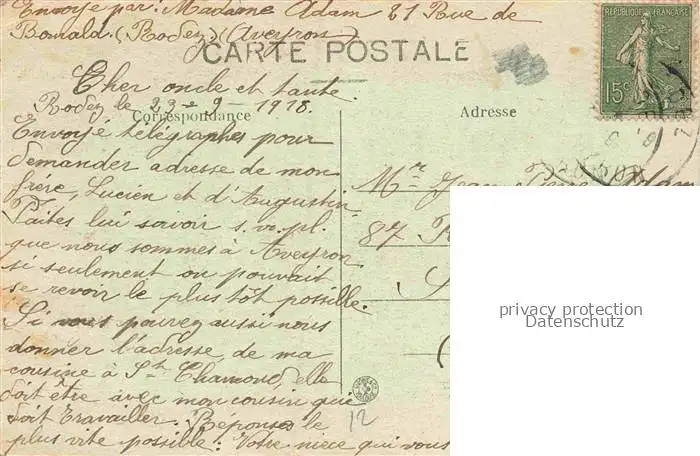 Envoyé par: Madame Adam 21 Rue de
Bonald. (Rodez) (Aveyron)
RÉPUBLIQUE FRANÇAISE
15c
CARTE POSTALE
Correspondance
Adresse
Cher oncle et tante.
Rodez le 23-9-1918.
Envoyé télégraphes pour
demander adresse de mon
frère, Lucien et d'Augustin
Faites lui savoir s.v.pl.
que nous sommes à Aveyron
si seulement on pouvait
se revoir le plus tôt possible.
Si vous pouvez aussi nous
donner l'adresse de ma
cousine à St Chamond, elle
doit être avec mon cousin qui
doit travailler. Réponse le
plus vite possible! Votre niece qui vous
Mr Jean
87 R
12
privacy protection
Datenschutz